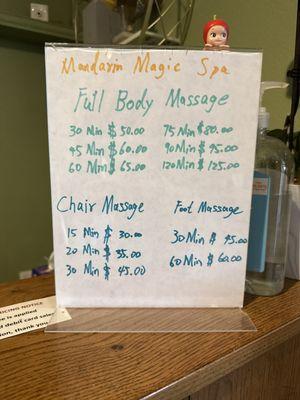 Mandarin Magic Spa
Full Body Massage
30 Min $50.00 75 Min $80.00
45 Min $60.00 90 Min $95.00
60 Min $65.00 120 Min $125.00
Chair Massage Foot Massage
15 Min $30.00
20 Min $35.00 30 Min $45.00
30 Min $45.00 60 Min $60.00
ICING NOTICE
e is applied
d debit card sales
ion, thank you